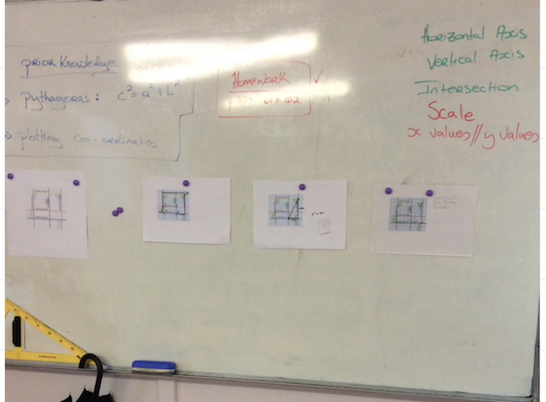 prior Knowledge
Pythagoras: c²=a²+b²
plotting co-ordinates
Homework
Horizontal Axis
Vertical Axis
Intersection
Scale
x values // y values